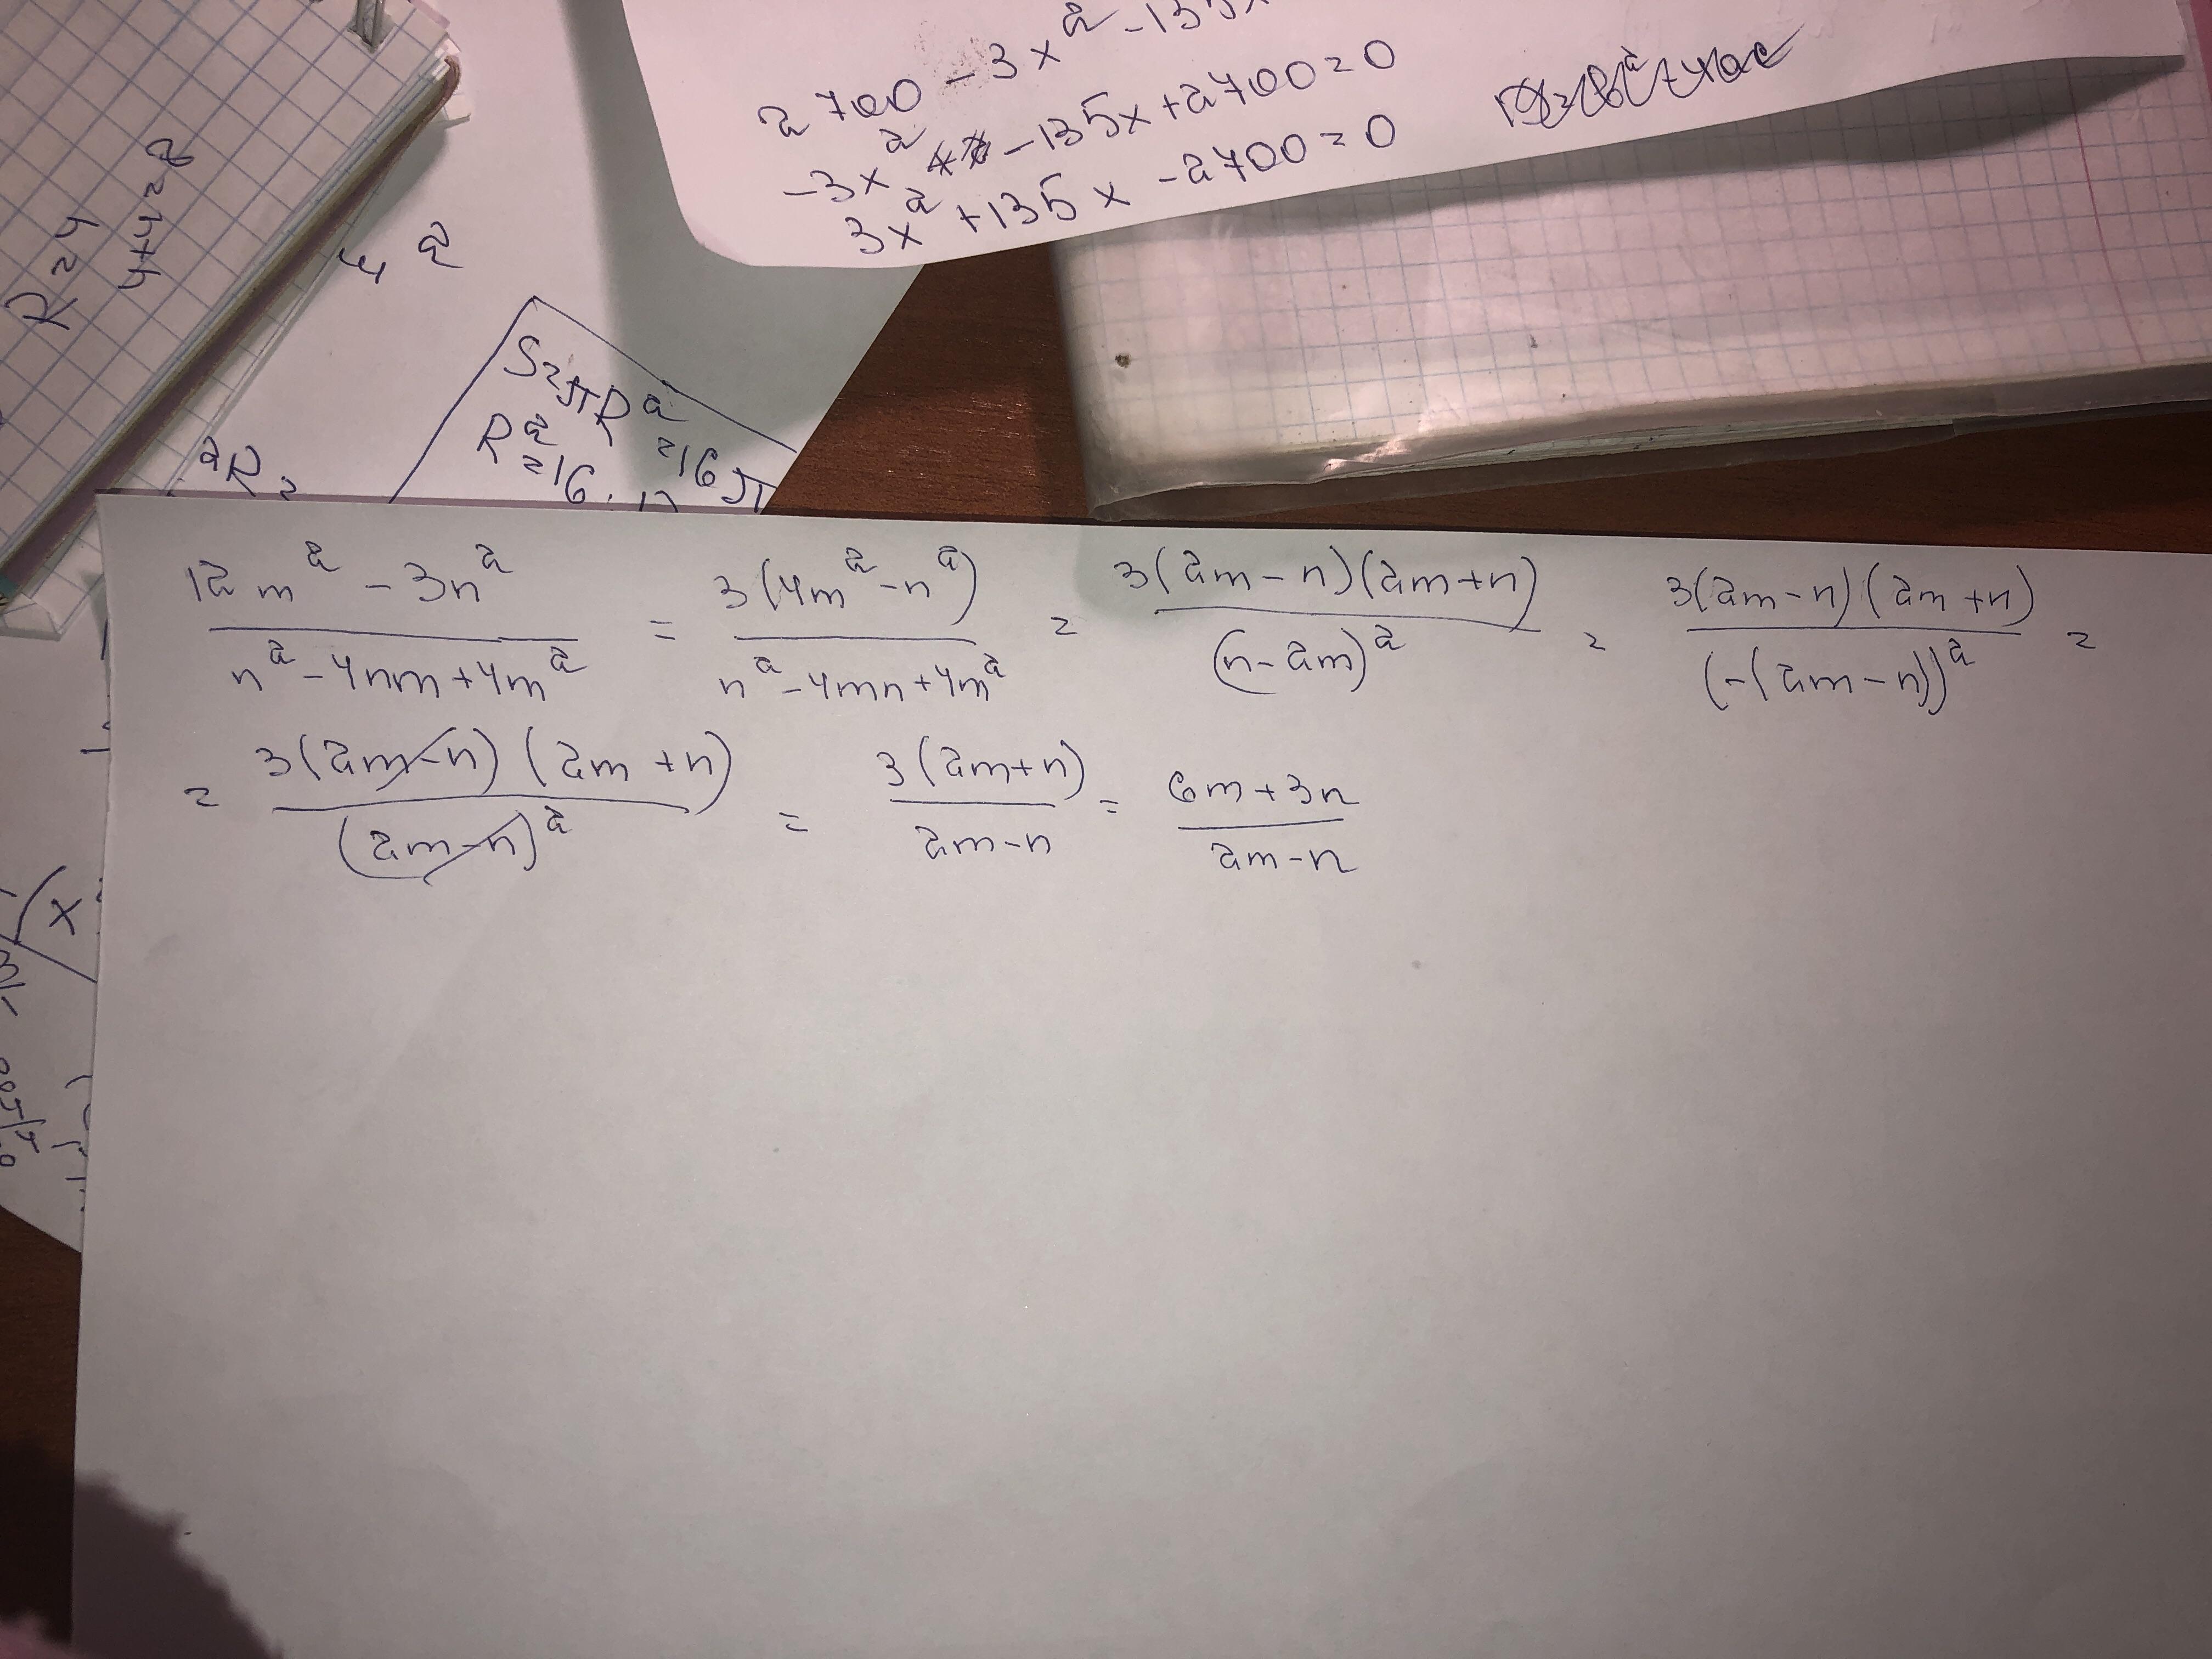 2700 - 3x² - 135x
-3x² - 135x + 2700 = 0
3x² + 135x - 2700 = 0
R = 4
4 + 4 = 8
S = πR² = 16π
R² = 16
2R =
(12m² - 3n²)/(n² - 4nm + 4m²) = 3(4m² - n²)/(n² - 4mn + 4m²) = 3(2m - n)(2m + n)/(n - 2m)² = 3(2m - n)(2m + n)/(-(2m - n))² =
= 3(2m - n)(2m + n)/(2m - n)² = 3(2m + n)/(2m - n) = (6m + 3n)/(2m - n)
x